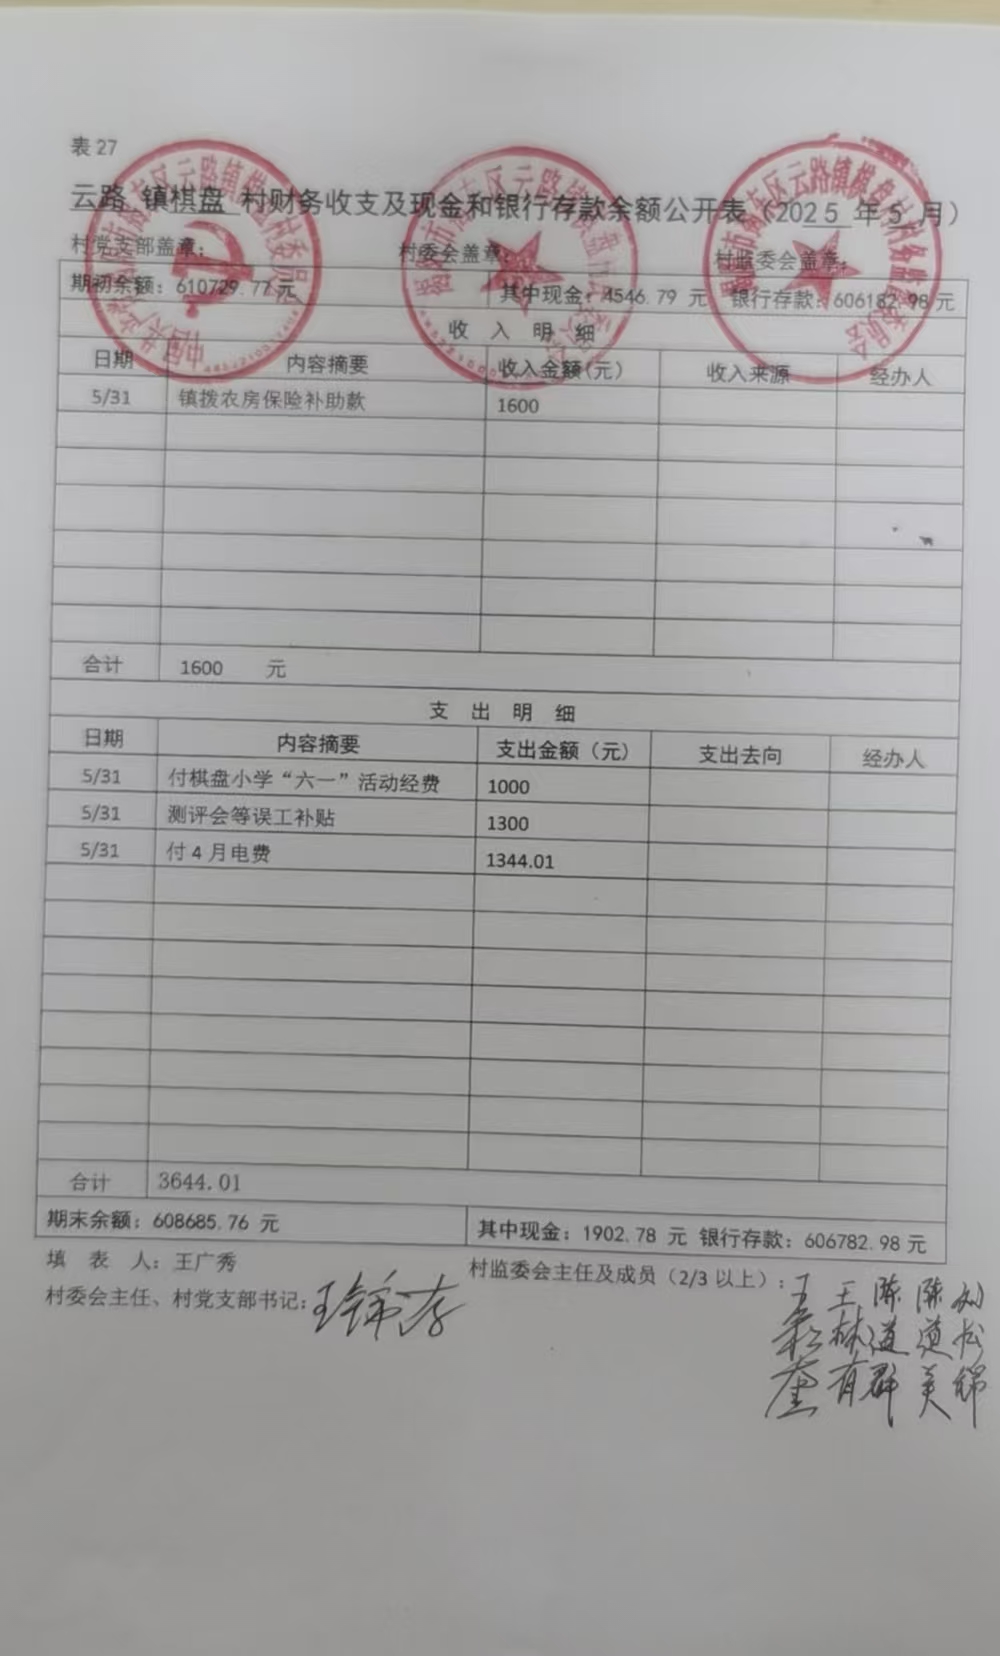 表 27
云路 镇棋盘 村财务收支及现金和银行存款余额公开表（2025 年 5 月）
村党支部盖章： 村委会盖章： 村监委会盖章：
期初余额：610729.77 元 其中现金：4546.79 元 银行存款：606182.98 元
收 入 明 细
日期 内容摘要 收入金额(元) 收入来源 经办人
5/31 镇拨农房保险补助款 1600
合计 1600 元
支 出 明 细
日期 内容摘要 支出金额（元） 支出去向 经办人
5/31 付棋盘小学“六一”活动经费 1000
5/31 测评会等误工补贴 1300
5/31 付 4 月电费 1344.01
合计 3644.01
期末余额：608685.76 元 其中现金：1902.78 元 银行存款：606782.98 元
填 表 人：王广秀 村监委会主任及成员（2/3 以上）：
村委会主任、村党支部书记：
王林有
陈道群
陈道美
刘松锦